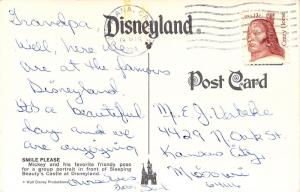 Grandpa,
Disneyland
Well, here we
are at the famous
Disneyland.
Its a beautiful
day and we
are enjoying
Post Card
USA 13c
Crazy Horse
M. E. J.
4429 N Oak St
Kansas City
Missouri
SMILE PLEASE
Mickey and his favorite friends pose
for a group portrait in front of Sleeping
Beauty's Castle at Disneyland.
© Walt Disney Productions